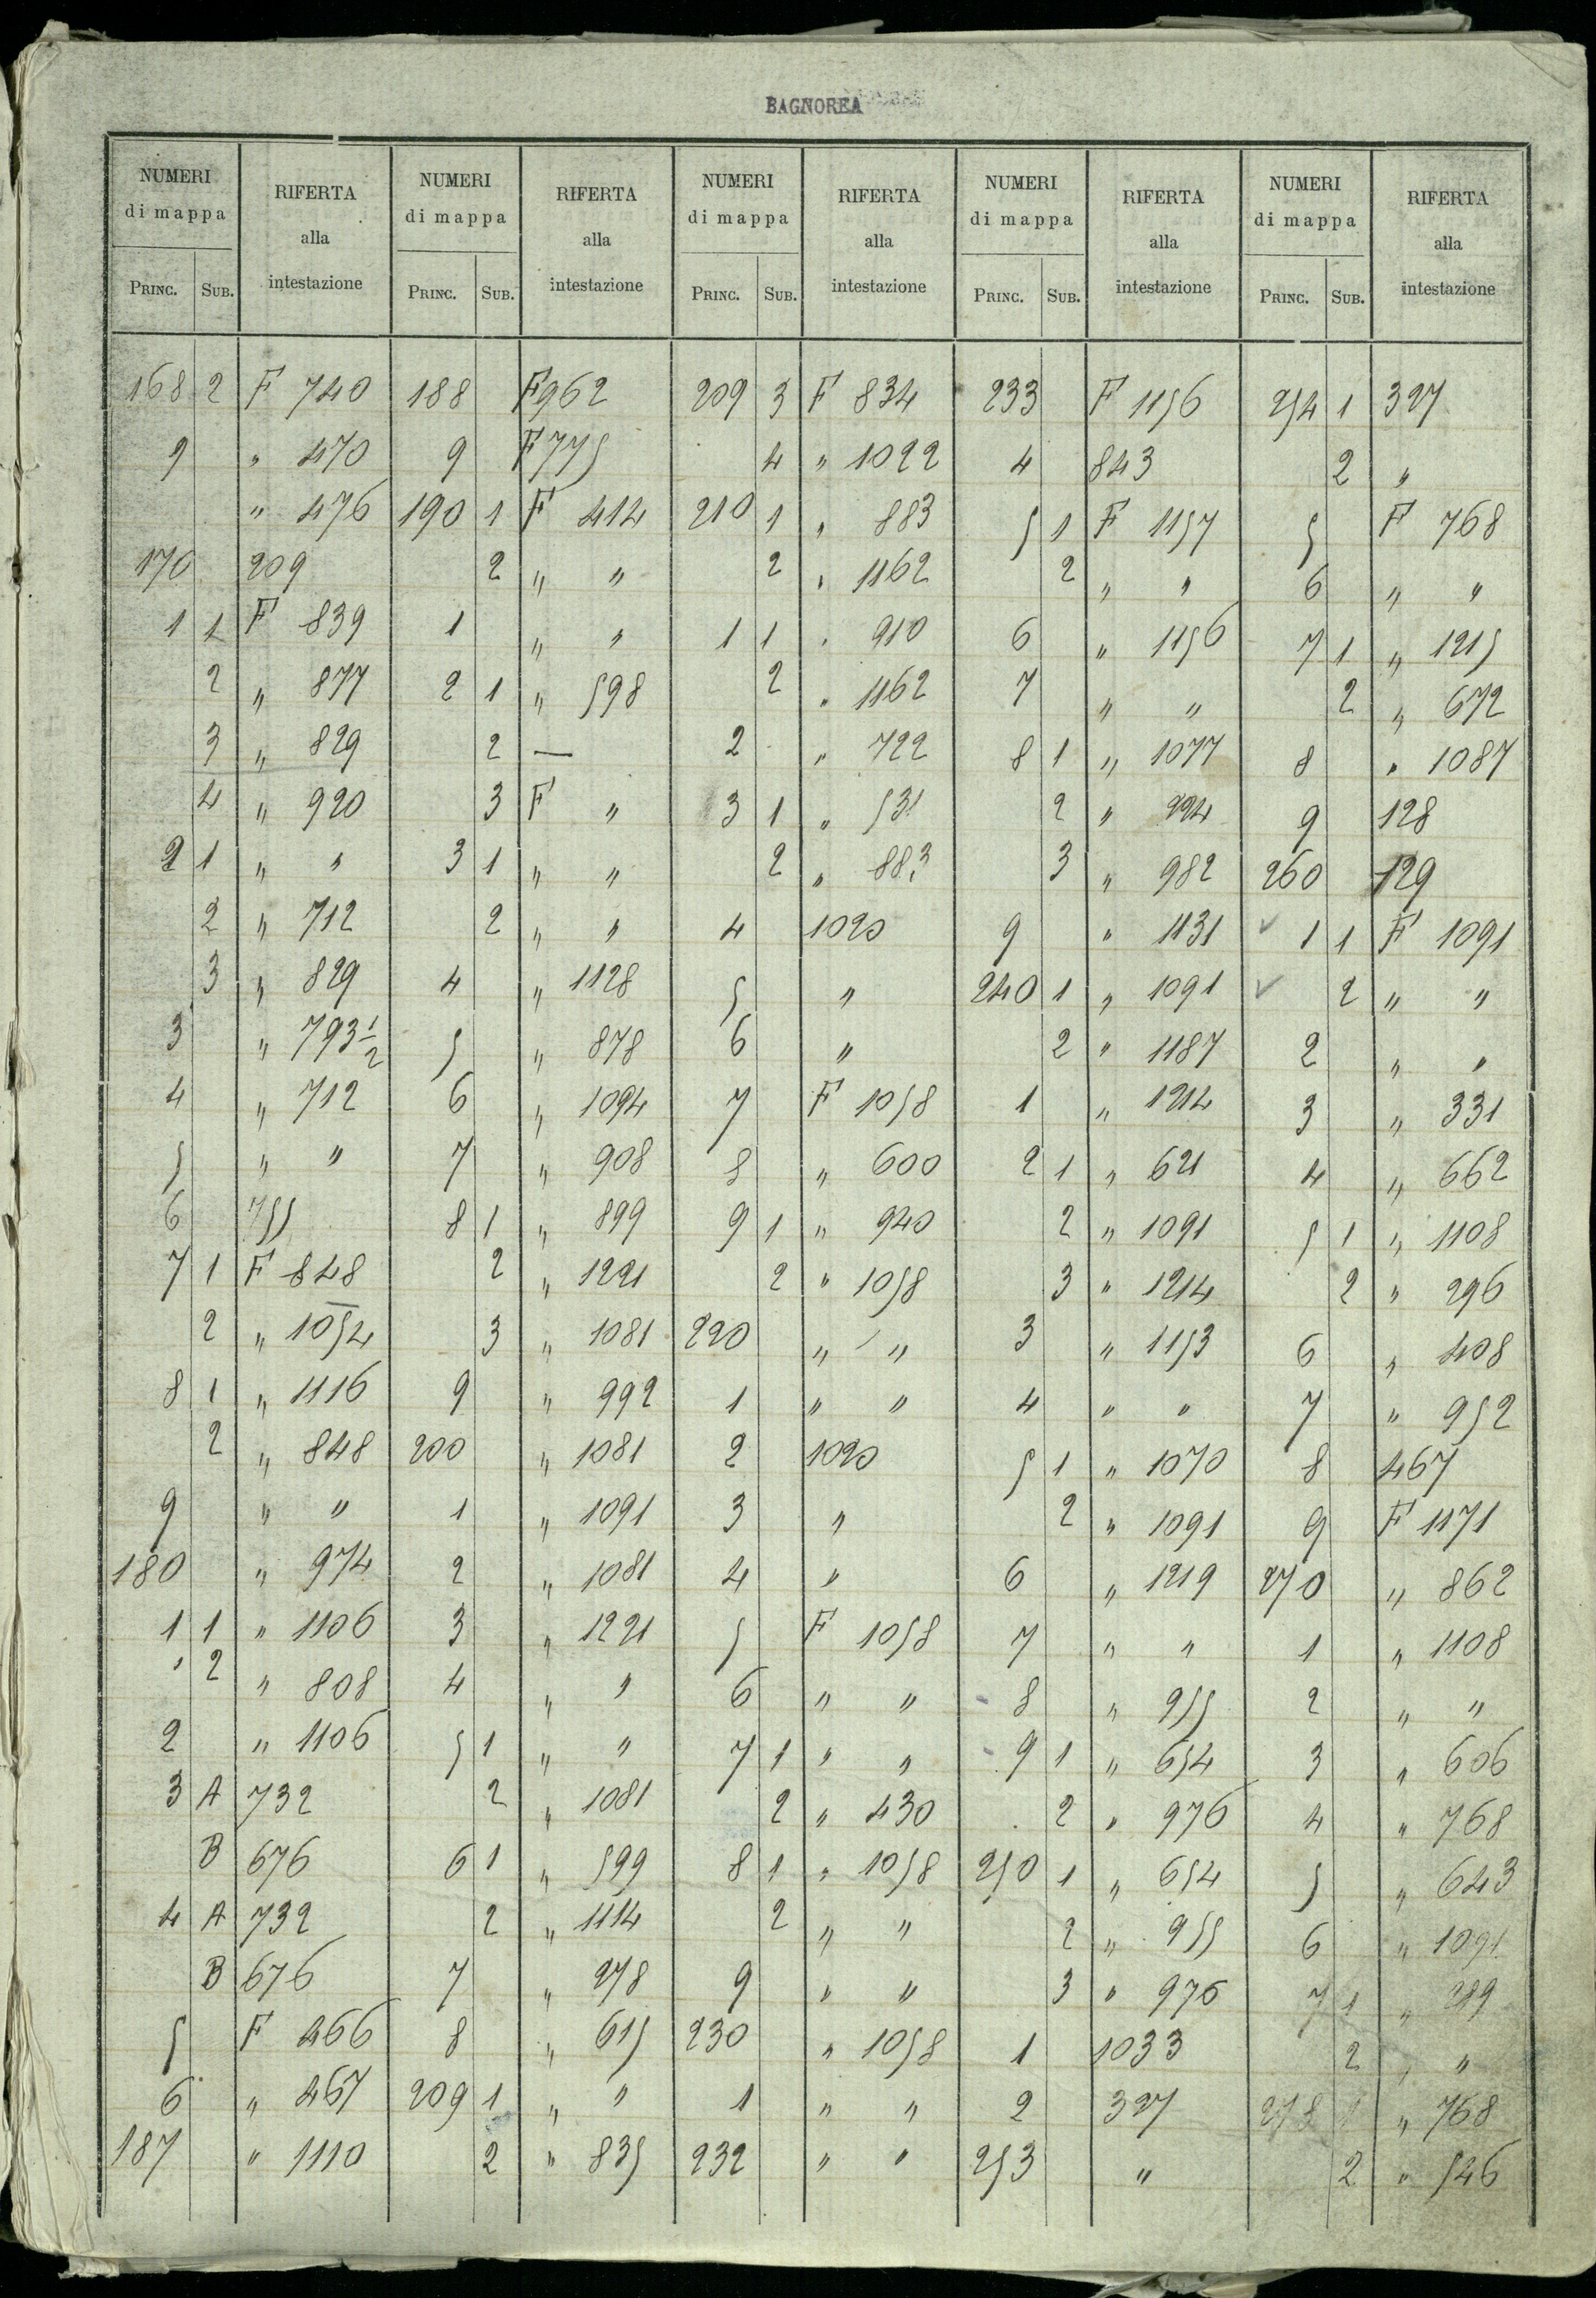 BAGNOREA
NUMERI di mappa RIFERTA alla intestazione NUMERI di mappa RIFERTA alla intestazione NUMERI di mappa RIFERTA alla intestazione NUMERI di mappa RIFERTA alla intestazione NUMERI di mappa RIFERTA alla intestazione
PRINC. SUB. PRINC. SUB. PRINC. SUB. PRINC. SUB. PRINC. SUB.
168 2 F 740 188 F 962 209 3 F 834 233 F 1156 254 1 327
9 " 470 9 F 775 4 " 1022 4 843 2 "
" 476 190 1 F 414 210 1 " 883 5 1 F 1157 5 F 768
170 209 2 " " 2 " 1162 2 " " 6 " "
1 1 F 839 1 " " 1 1 " 910 6 " 1156 7 1 " 1215
2 " 877 2 1 " 598 2 " 1162 7 " " 2 " 672
3 " 829 2 — 2 " 722 8 1 " 1077 8 " 1087
4 " 920 3 F " 3 1 " 531 2 " 224 9 128
2 1 " " 3 1 " " 2 " 883 3 " 982 260 129
2 " 712 2 " " 4 1020 9 " 1131 1 1 F 1091
3 " 829 4 " 1128 5 " 240 1 " 1091 2 " "
3 " 793 1/2 5 " 878 6 " 2 " 1187 2 " "
4 " 712 6 " 1094 7 F 1058 1 " 1214 3 " 331
5 " " 7 " 908 8 " 600 2 1 " 621 4 " 662
6 755 8 1 " 899 9 1 " 940 2 " 1091 5 1 " 1108
7 1 F 848 2 " 1221 2 " 1058 3 " 1214 2 " 296
2 " 1054 3 " 1081 220 " " 3 " 1153 6 " 408
8 1 " 1116 9 " 992 1 " " 4 " " 7 " 952
2 " 848 200 " 1081 2 1020 5 1 " 1070 8 467
9 " " 1 " 1091 3 " 2 " 1091 9 F 1171
180 " 974 2 " 1081 4 " 6 " 1219 270 " 862
1 1 " 1106 3 " 1221 5 F 1058 7 " " 1 " 1108
" 2 " 808 4 " " 6 " " 8 " 955 2 " "
2 " 1106 5 1 " " 7 1 " " 9 1 " 654 3 " 606
3 A 732 2 " 1081 2 " 430 2 " 976 4 " 768
B 676 6 1 " 599 8 1 " 1058 250 1 " 654 5 " 643
4 A 732 2 " 1114 2 " " 2 " 955 6 " 1091
B 676 7 " 278 9 " " 3 " 976 7 1 "
5 F 466 8 " 615 230 " 1058 1 1033 2 " "
6 " 467 209 1 " " 1 " " 2 327 278 1 " 768
187 " 1110 2 " 835 232 " " 253 " 2 " 546